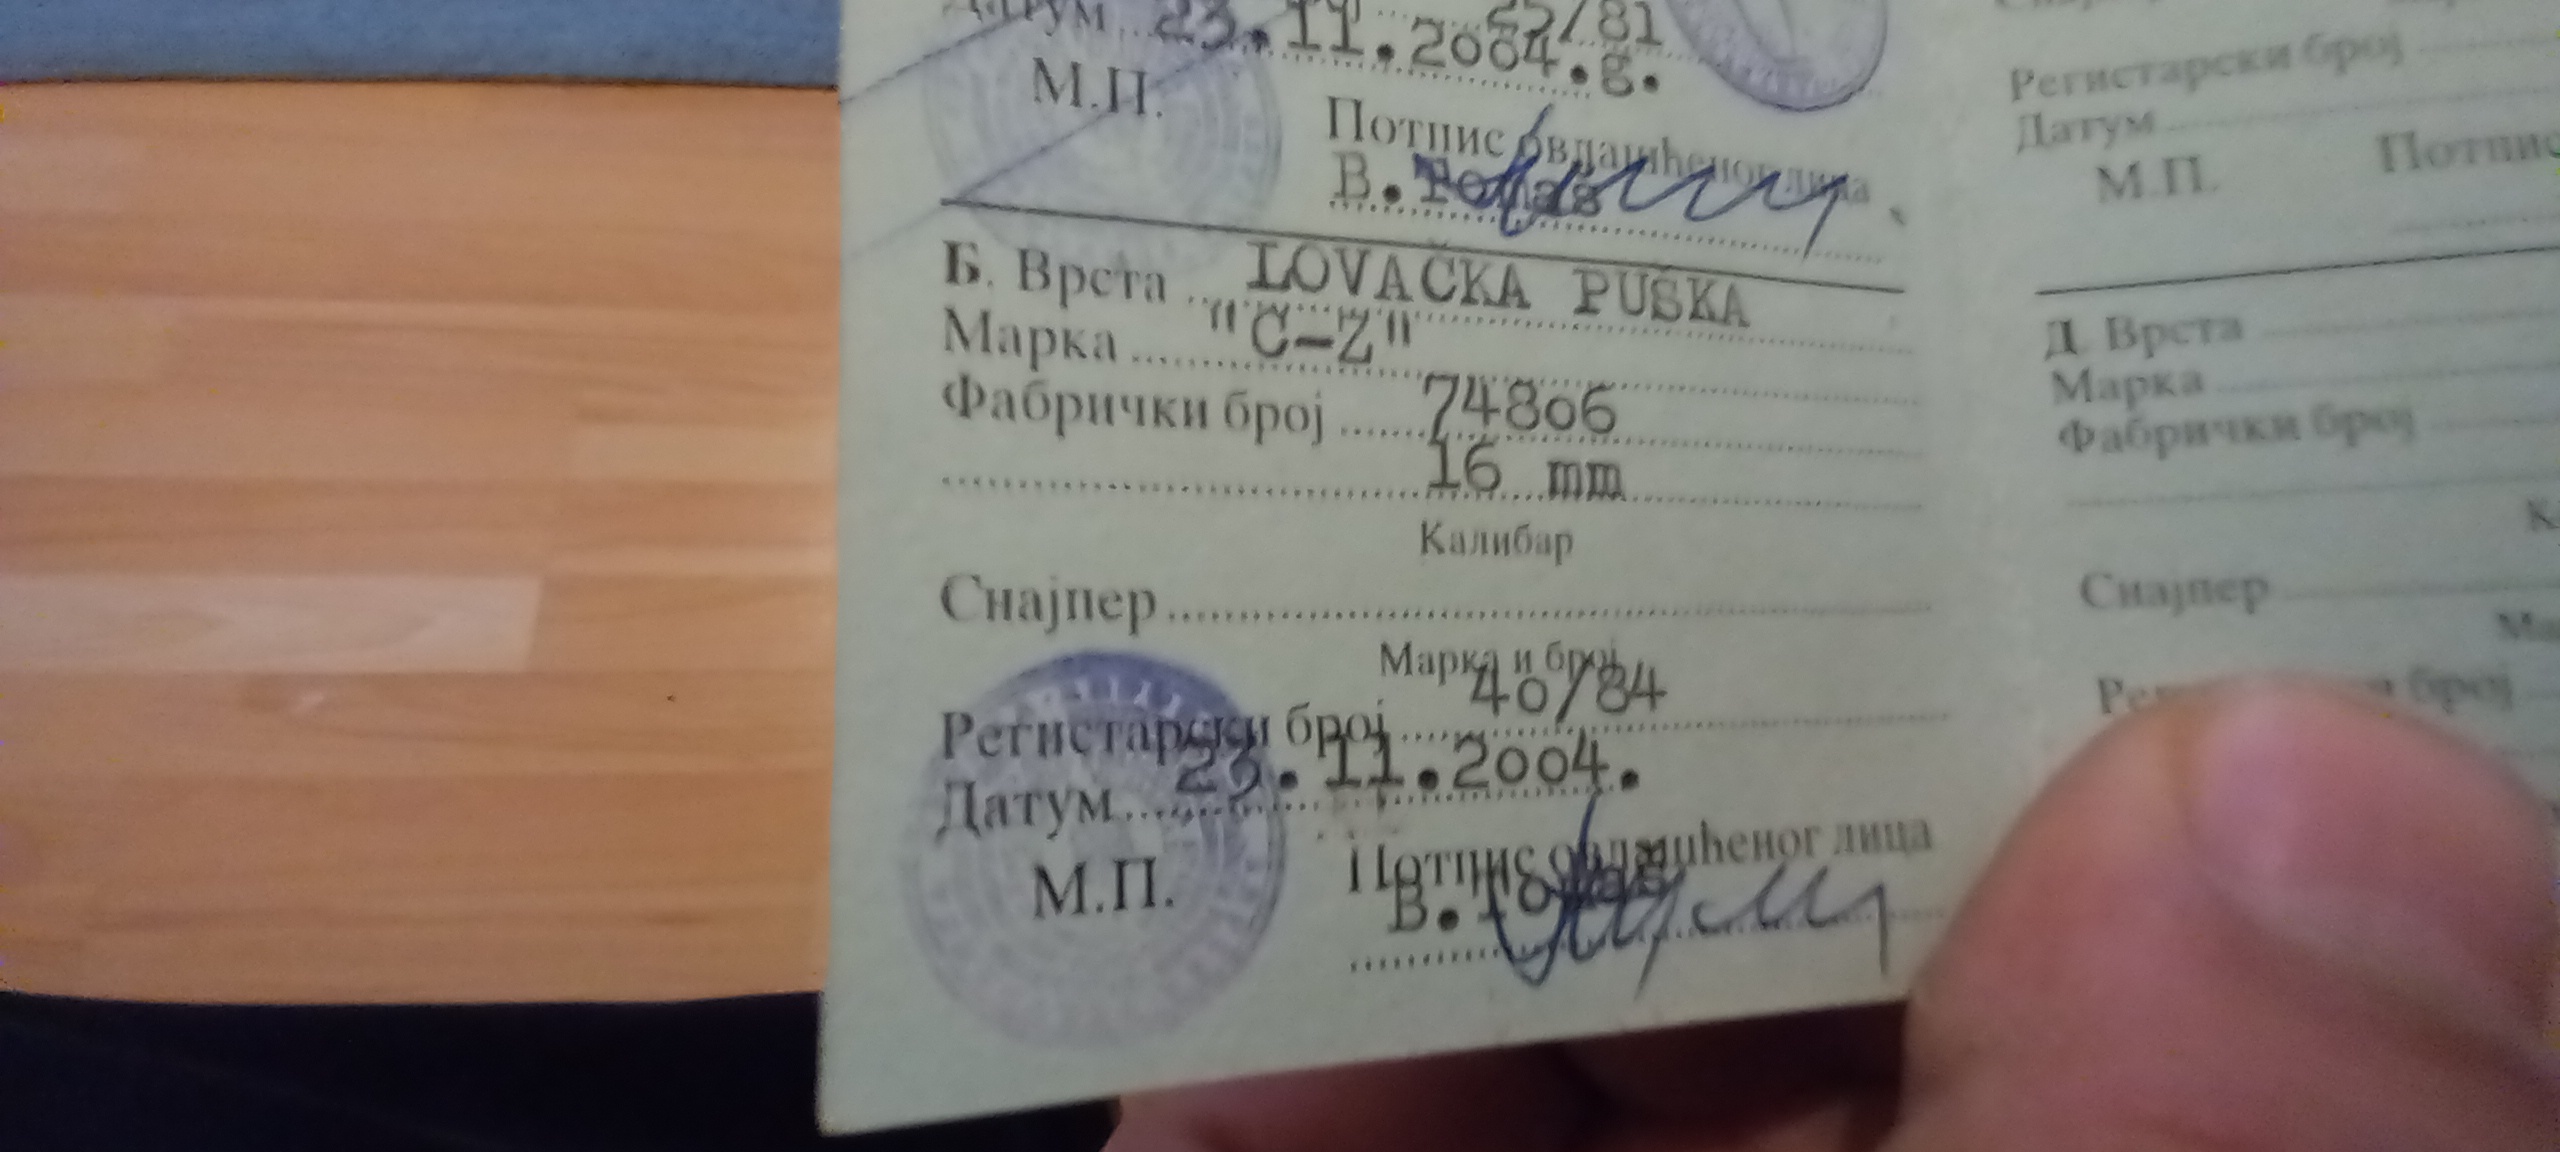 Датум 23.11.2004.g.
М.П.
Потпис овлашћеног лица
B.
Б. Врста LOVAČKA PUŠKA
Марка "C-Z"
Фабрички број 74806
16 mm
Калибар
Снајпер
Марка и број
Регистарски број 40/84
Датум 23.11.2004.
М.П.
Потпис овлашћеног лица
B.
Регистарски број
Датум
М.П. Потпис
Д. Врста
Марка
Фабрички број
Снајпер
број